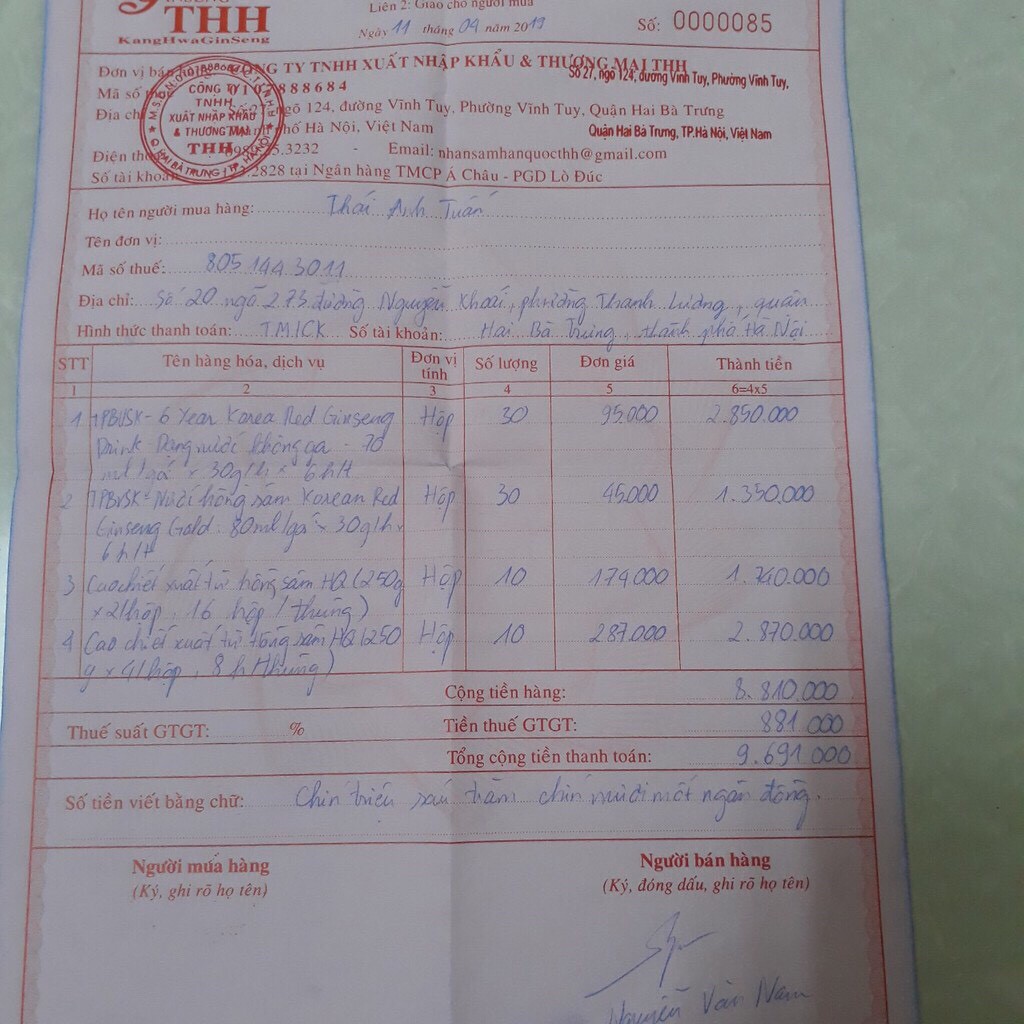 GINSENG
THH
KangHwaGinSeng
Liên 2: Giao cho người mua
Ngày 11 tháng 04 năm 2019
Số: 0000085
Đơn vị bán CÔNG TY TNHH XUẤT NHẬP KHẨU & THƯƠNG MẠI THH
Số 27, ngõ 124, đường Vĩnh Tuy, Phường Vĩnh Tuy,
Mã số 0107888684
Địa chỉ: Số 27 ngõ 124, đường Vĩnh Tuy, Phường Vĩnh Tuy, Quận Hai Bà Trưng
Thành phố Hà Nội, Việt Nam
Quận Hai Bà Trưng, TP.Hà Nội, Việt Nam
CÔNG TY
TNHH
XUẤT NHẬP KHẨU
& THƯƠNG MẠI
THH
Q HAI BÀ TRƯNG - TP. HÀ NỘI
3232 - Email: nhansamhanquocthh@gmail.com
Số tài khoản 2828 tại Ngân hàng TMCP Á Châu - PGD Lò Đúc
Họ tên người mua hàng: Thái Anh Tuấn
Tên đơn vị:
Mã số thuế: 8051443011
Địa chỉ: Số 20 ngõ 273 đường Nguyễn Khoái, phường Thanh Lương, quận
Hình thức thanh toán: TM/CK Số tài khoản: Hai Bà Trưng, thành phố Hà Nội
STT Tên hàng hóa, dịch vụ Đơn vị tính Số lượng Đơn giá Thành tiền
1 2 3 4 5 6=4x5
1 TPBVSK - 6 Year Korea Red Ginseng Hộp 30 95.000 2.850.000
Drink Dạng nước không ga - 70
ml/gói x 30g/h x 6h/t
2 TPBVSK - Nước hồng sâm Korean Red Hộp 30 45.000 1.350.000
Ginseng Gold: 80ml/gói x 30g/h x
6h/t
3 Cao chiết xuất từ hồng sâm HQ (250g Hộp 10 174.000 1.740.000
x 2l/hộp, 16 hộp/thùng)
4 Cao chiết xuất từ hồng sâm HQ (250 Hộp 10 287.000 2.870.000
g x 4l/hộp, 8h/thùng)
Cộng tiền hàng: 8.810.000
Thuế suất GTGT: % Tiền thuế GTGT: 881.000
Tổng cộng tiền thanh toán: 9.691.000
Số tiền viết bằng chữ: Chín triệu sáu trăm chín mươi mốt ngàn đồng.
Người mua hàng
(Ký, ghi rõ họ tên)
Người bán hàng
(Ký, đóng dấu, ghi rõ họ tên)
Nguyễn Văn Nam